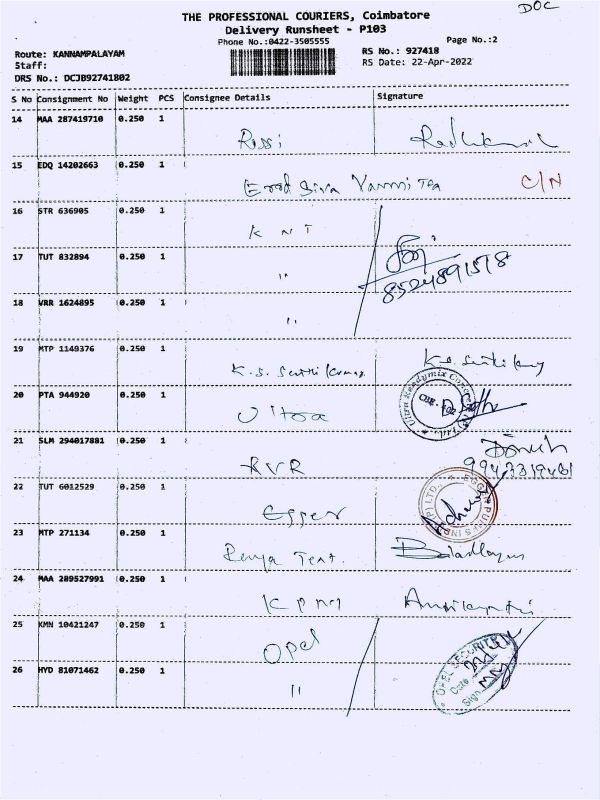 DOC
THE PROFESSIONAL COURIERS, Coimbatore
Delivery Runsheet - P103
Phone No.:0422-3505555
Page No.:2
Route: KANNAMPALAYAM
RS No.: 927418
Staff:
RS Date: 22-Apr-2022
DRS No.: DCJB92741802
S No Consignment No Weight PCS Consignee Details Signature
14 MAA 287419710 0.250 1
Rossi
15 EDQ 14202663 0.250 1
Erod Siva Vanmi Tea C/N
16 STR 636905 0.250 1
K N T
17 TUT 832894 0.250 1
"
8524891578
18 VRR 1624895 0.250 1
"
19 MTP 1149376 0.250 1
K.S. Senthil Kumar
20 PTA 944920 0.250 1
Ultra
21 SLM 294017881 0.250 1
RVR
22 TUT 6012529 0.250 1
Egger
23 MTP 271134 0.250 1
Renya Text.
24 MAA 289527991 0.250 1
25 KMN 10421247 0.250 1
Opel
OPEL SECURITY
Date
Sign
26 HYD 81071462 0.250 1
"